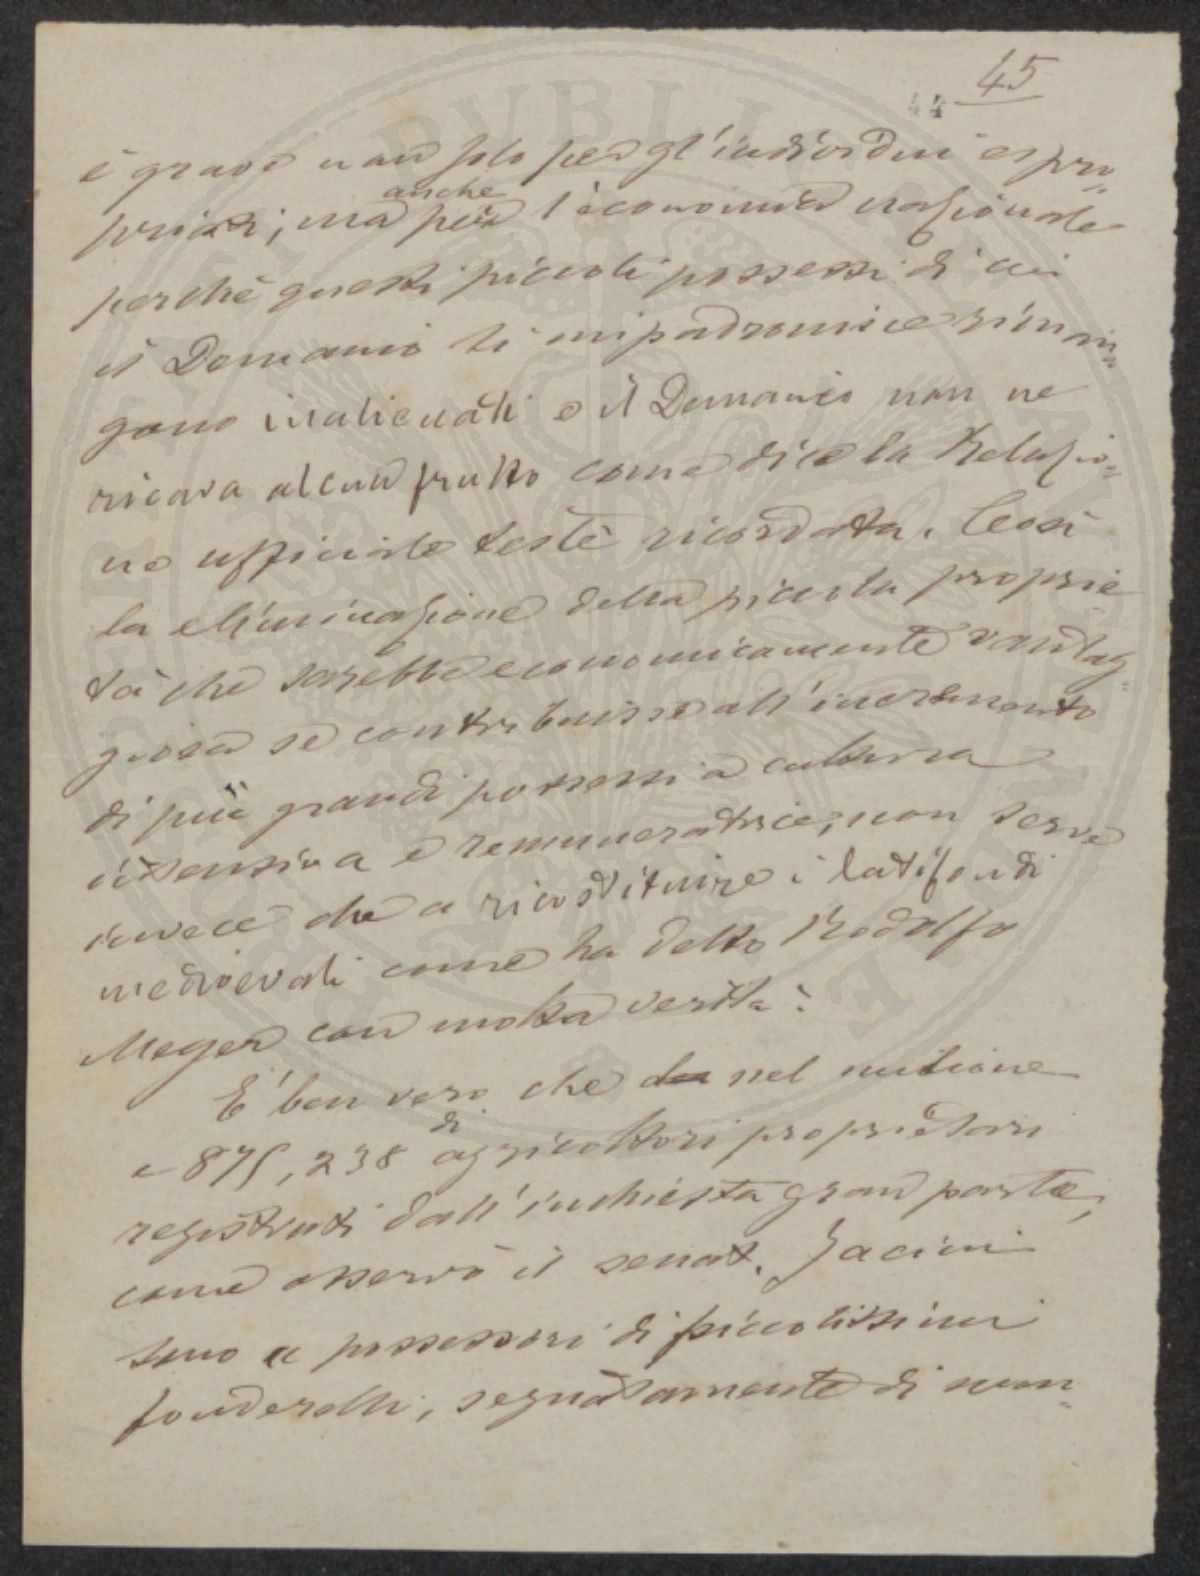 45
44
è grave non solo per gl'individui espro=
priati; ma anche per l'economia nazionale
perchè questi piccoli possessi di cui
il Demanio si impadronisce riman=
gono inalienati e il Demanio non ne
ricava alcun frutto come dice la Relazio=
ne ufficiale testè ricordata. Così
la eliminazione della piccola proprie
tà che sarebbe economicamente vantag=
giosa se contribuisse all'incremento
di più grandi possessi a cultura
intensiva e remuneratrice, non serve
invece che a ricostituire i latifondi
medioevali come ha detto Rodolfo
Meyer con molta verità.
E' ben vero che nel milione
e 875,238 di agricoltori proprietari
registrati dall'inchiesta gran parte,
come osservò il senat. Jacini
sono possessori di piccolissimi
fonderelli, segnatamente di mon=